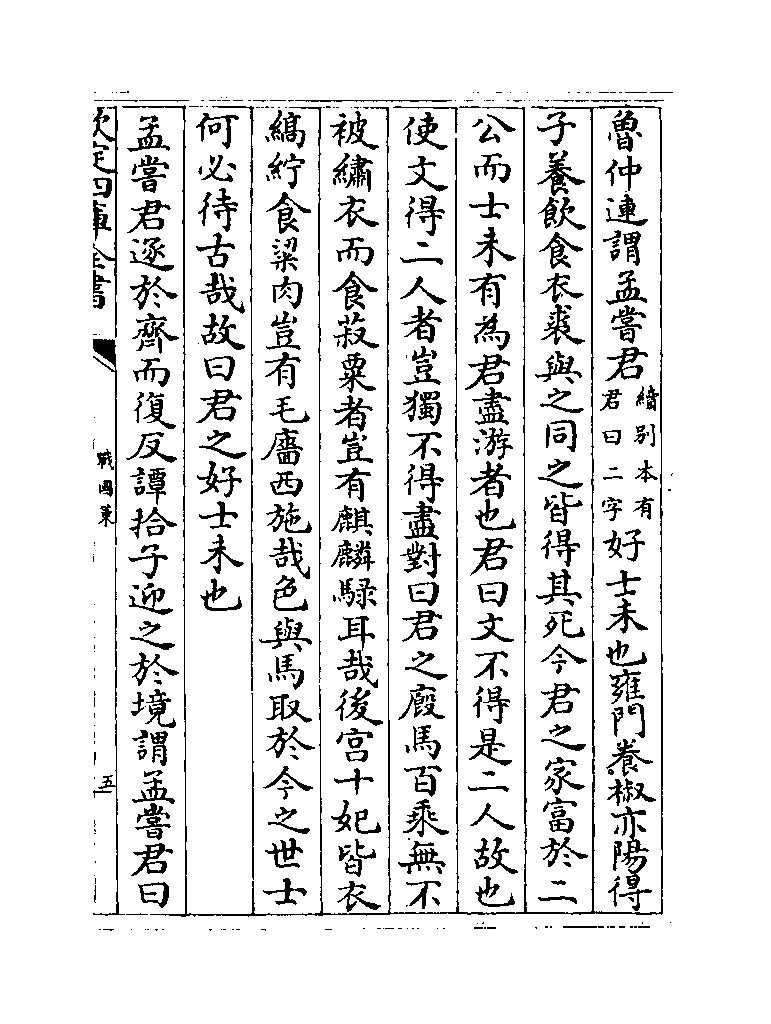 魯仲連謂孟嘗君續别本有君曰二字好士未也雍門養椒亦陽得
子養飲食衣裘與之同之皆得其死今君之家富於二
公而士未有為君盡游者也君曰文不得是二人故也
使文得二人者豈獨不得盡對曰君之廏馬百乘無不
被繡衣而食菽粟者豈有麒麟騄耳哉後宫十妃皆衣
縞紵食粱肉豈有毛廧西施哉色與馬取於今之世士
何必待古哉故曰君之好士未也
孟嘗君逐於齊而復反譚拾子迎之於境謂孟嘗君曰
欽定四庫全書
戰國策
五